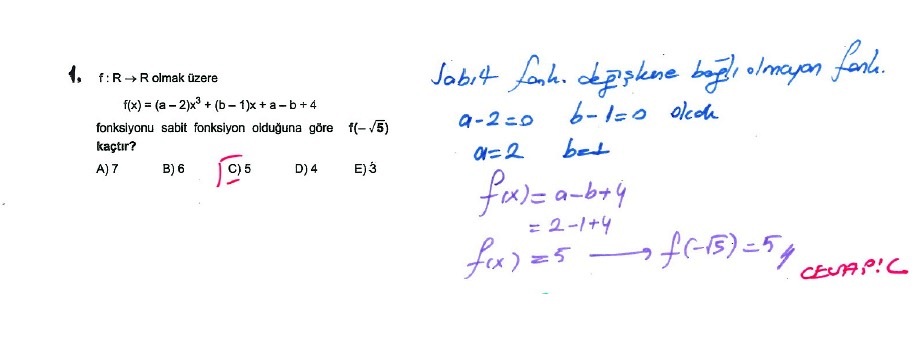 1. f : R → R olmak üzere
f(x) = (a – 2)x³ + (b – 1)x + a – b + 4
fonksiyonu sabit fonksiyon olduğuna göre f(– √5)
kaçtır?
A) 7 B) 6 C) 5 D) 4 E) 3
Sabit fonk. değişkene bağlı olmayan fonk.
a-2=0 b-1=0 olcak
a=2 b=1
f(x)= a-b+4
= 2-1+4
f(x) = 5 → f(-√5)=5
CEVAP: C